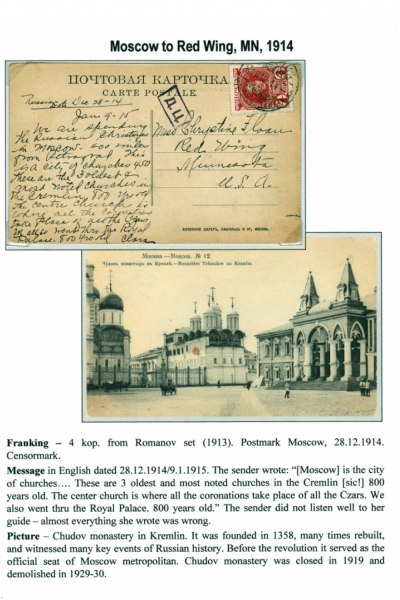 Moscow to Red Wing, MN, 1914
ПОЧТОВАЯ КАРТОЧКА
CARTE POSTALE
Russian
Date Dec 28-14
Jan 9-15
We are spending
the Russian Christmas
in Moscow. 400 miles
from Petrograd. This
is a city of churches 450
These are the 3 oldest &
most noted churches in
the Cremlin, 800 yrs old
The centre church is
where all the coronations
take place of all the Czars,
We also went thru the Royal
Palace. 800 yrs old Clara
Д.Ц.
Miss Chrystine Sloan
Red Wing
Minnesota
U. S. A.
Москва.—Moscou. № 12.
Чудовъ монастырь въ Кремлѣ.—Monastère Tchoudow au Kremlin.
Franking – 4 kop. from Romanov set (1913). Postmark Moscow, 28.12.1914.
Censormark.
Message in English dated 28.12.1914/9.1.1915. The sender wrote: “[Moscow] is the city
of churches…. These are 3 oldest and most noted churches in the Cremlin [sic!] 800
years old. The center church is where all the coronations take place of all the Czars. We
also went thru the Royal Palace. 800 years old.” The sender did not listen well to her
guide – almost everything she wrote was wrong.
Picture – Chudov monastery in Kremlin. It was founded in 1358, many times rebuilt,
and witnessed many key events of Russian history. Before the revolution it served as the
official seat of Moscow metropolitan. Chudov monastery was closed in 1919 and
demolished in 1929-30.